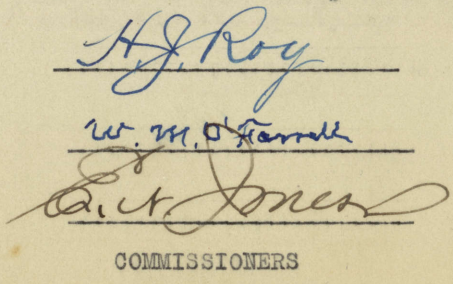 H. J. Roy
W. M. O'Farrell
E. N. Jones
COMMISSIONERS